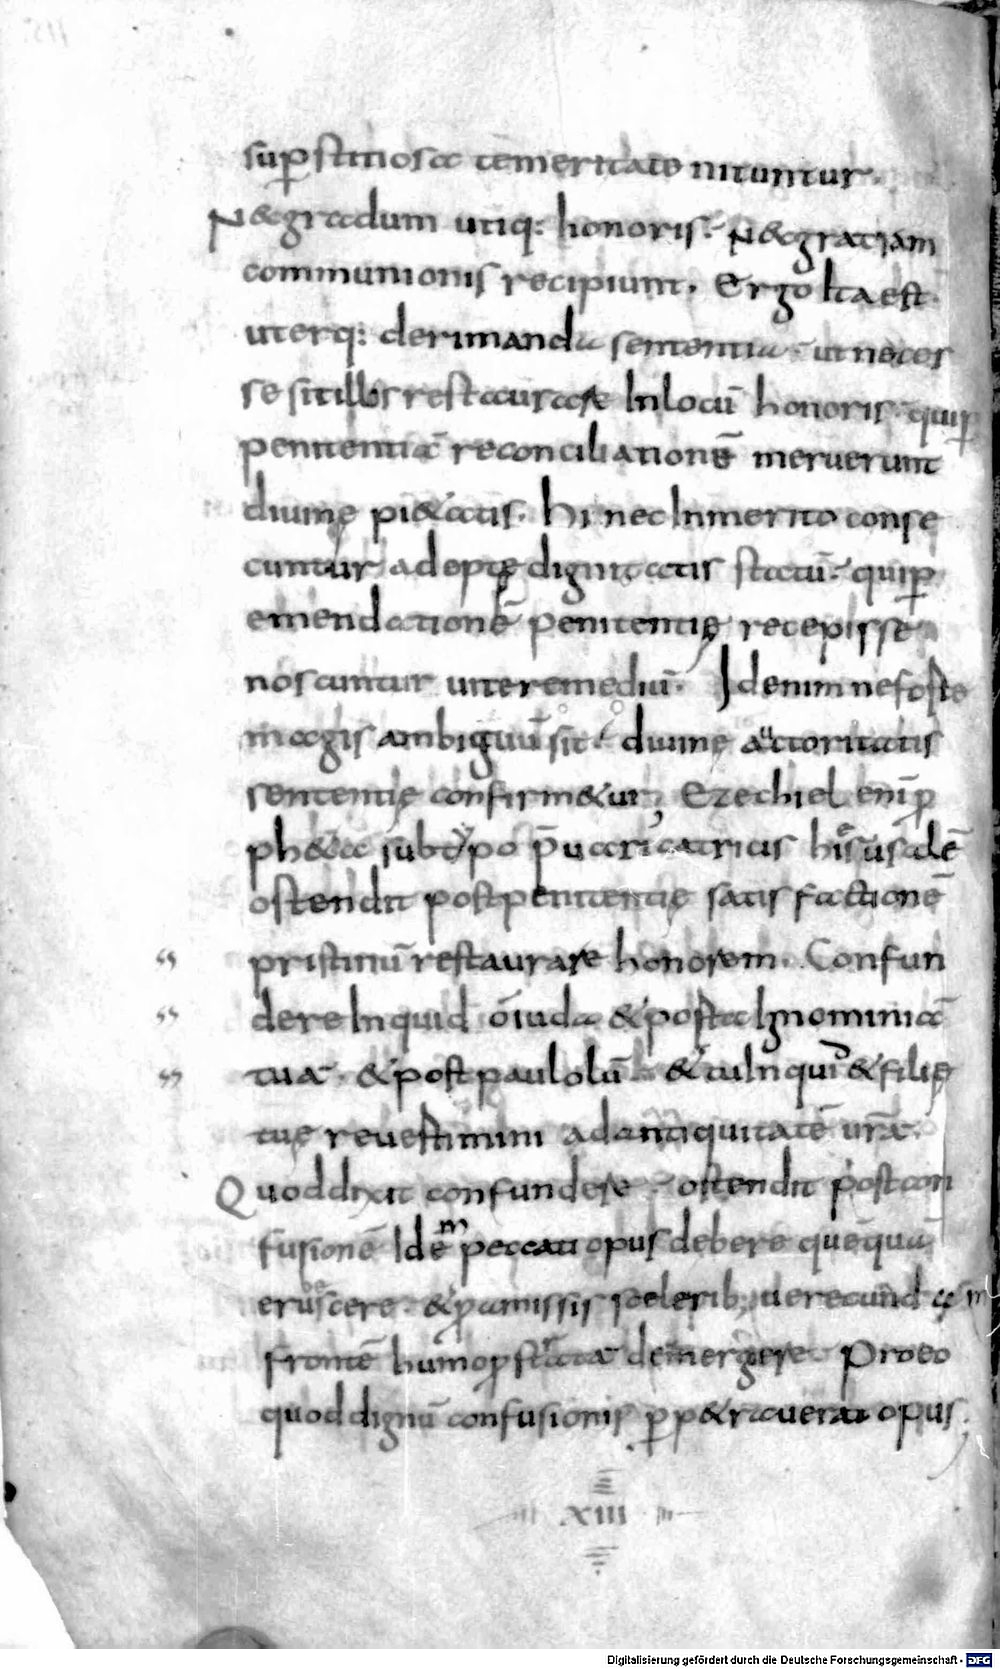 sup̲stitiosa temeritate nituntur.
N&gradum utiq: honoris. N&gratiam
communionis recipiunt. Ergo Ita est
uterq: derimanda sententia. ut neces
se sit illis restaurare In locū honoris. qui p̲
penitentiā reconciliationē meruerunt
diuinę pi&atis. Hi nec Inmerito conse
cuntur adeptę dignitatis statū. qui p̲
emendationē penitentię recepisse
noscuntur uite remediū. Id enim ne foste
magis ambiguū sit. diuinę auctoritatis
sententię confirm&ur; Ezechiel enī p
ph&a sub typo p̄uaricatricis hierusalē
ostendit post penitentię satisfactionē
pristinū restaurare honorem. Confun
dere Inquid ō iuda & porta Ignominiā
tuā. & post paulolū & tu Inquid & filię
tuę reuertimini ad antiquitatē urā.
Quod dixit confundere. ostendit post con
fusionē Idē peccati opus debere quēquā
erubescere. & p̲ amissis sceleribus uerecundā
frontē humo p̲stratā demergere. Pro eo
quod dignū confusionis p̲p&rauerat opus.
XIII
Digitalisierung gefördert durch die Deutsche Forschungsgemeinschaft - DFG